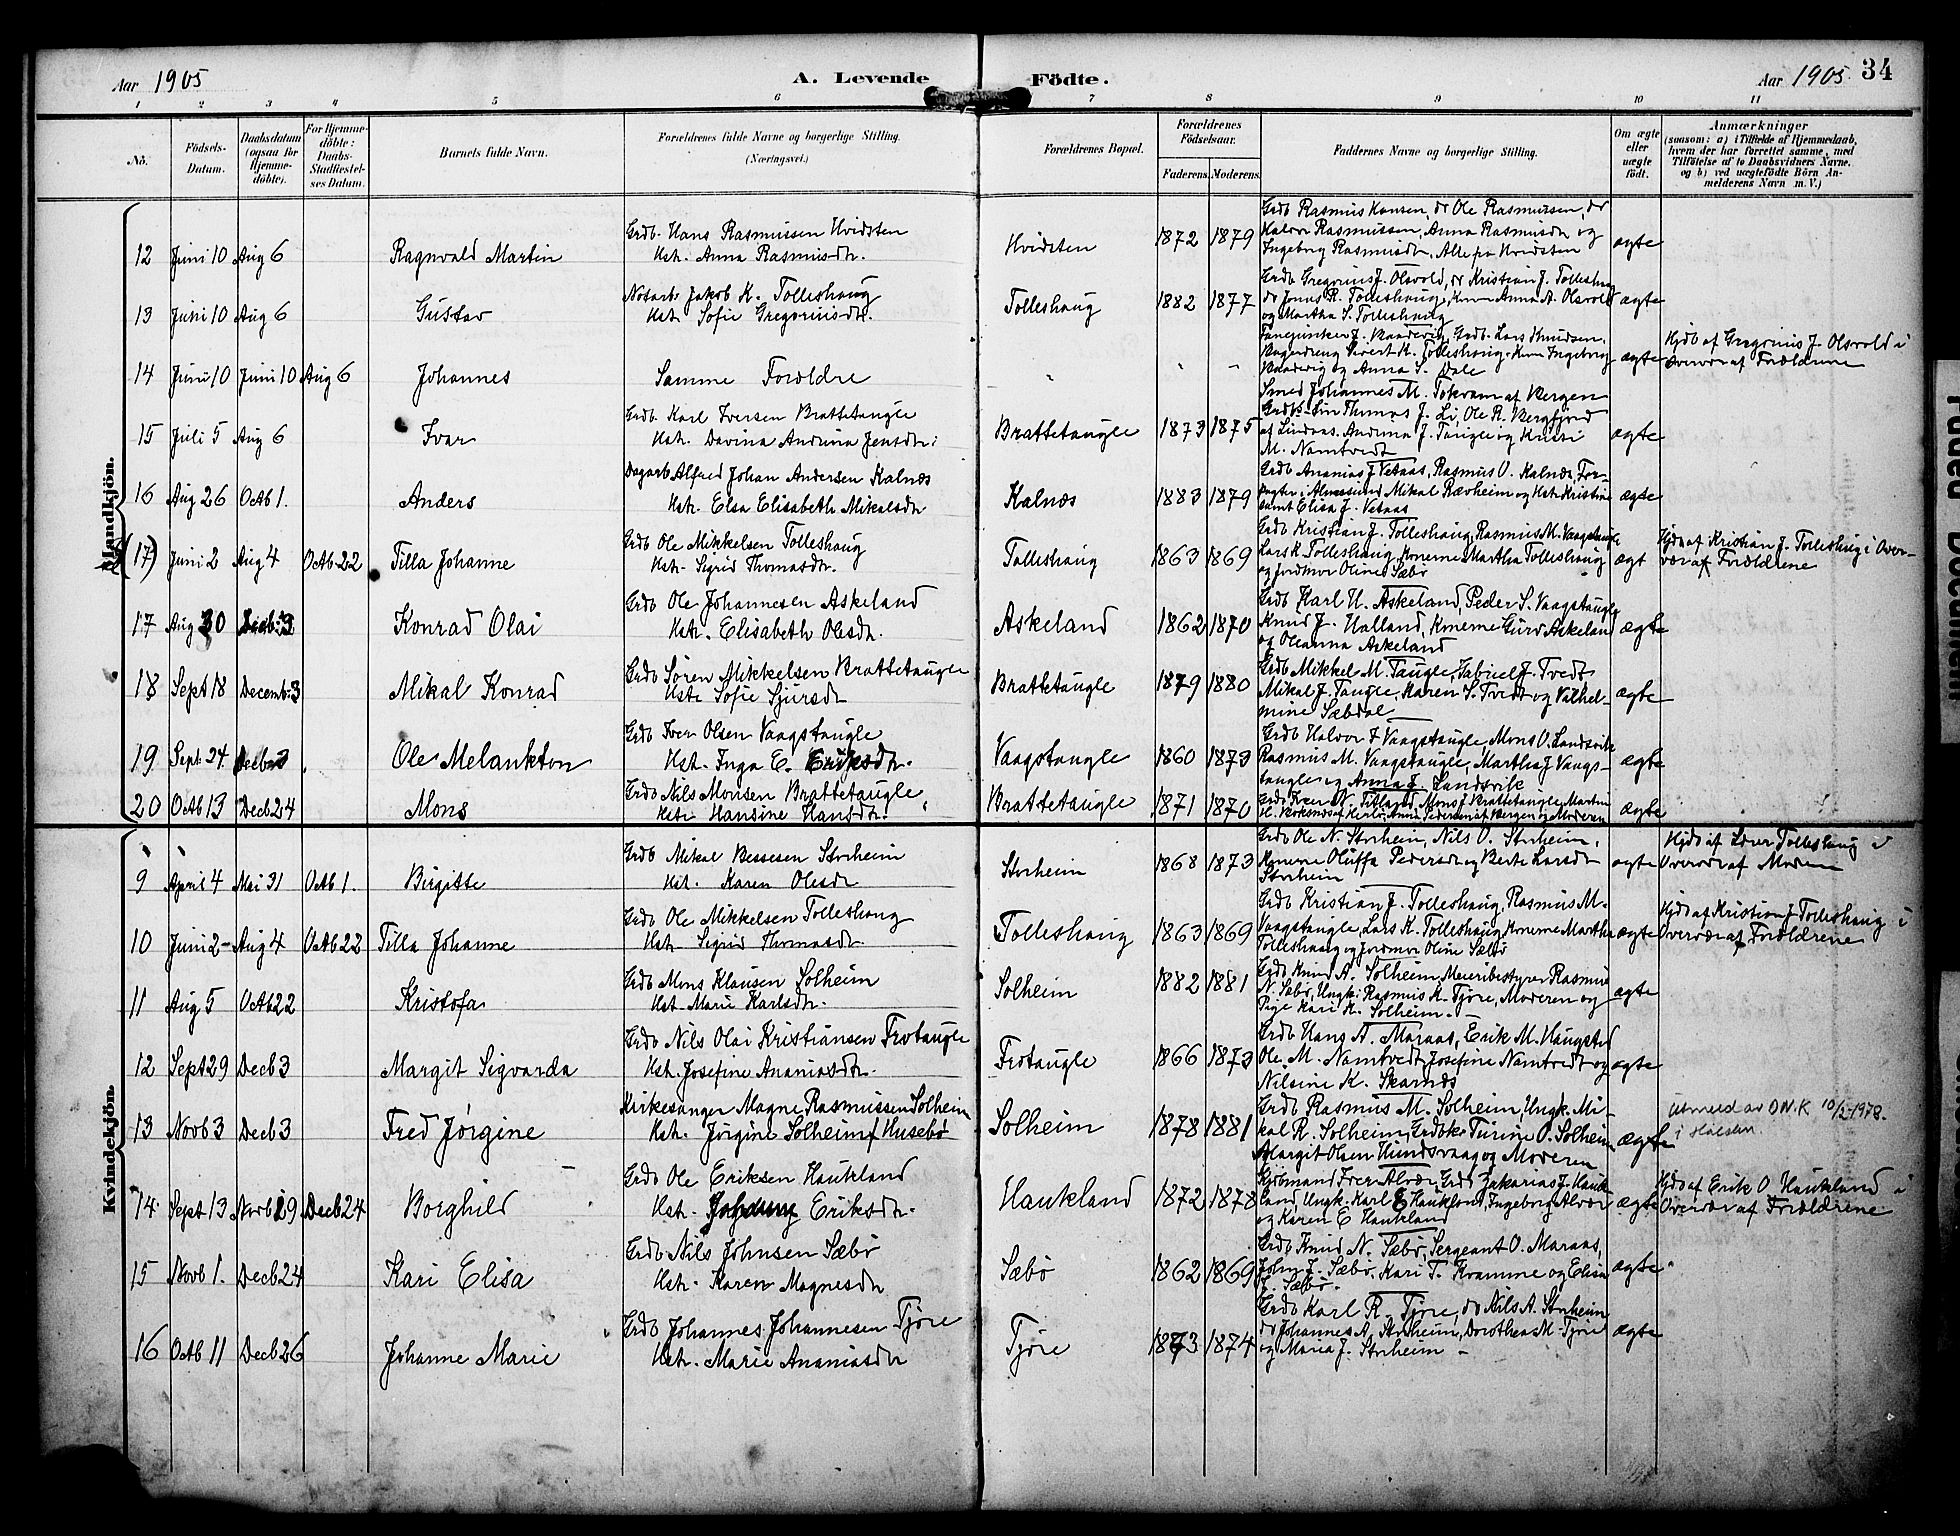 Aar 1905
A. Levende Födte.
Aar 1905.
34
1 2 3 4 5 6 7 8 9 10 11
No.
Födsels-
Datum.
Daabsdatum
(ogsaa for
Hjemme-
döbte).
For Hjemme-
döbte:
Daabs-
Stadfæstel-
ses Datum.
Barnets fulde Navn.
Forældrenes fulde Navne og borgerlige Stilling.
(Næringsvei.)
Forældrenes Bopæl.
Forældrenes
Födselsaar.
Faderens. Moderens.
Faddernes Navne og borgerlige Stilling.
Om ægte
eller
uægte
födt.
Anmærkninger
(saasom: a) i Tilfælde af Hjemmedaab,
hvem der har forrettet samme, med
Tilföielse af to Daabsvidners Navne,
og b) ved uægtefödte Börn An-
melderens Navn m. V.)
Mandkjön.
12 Juni 10 Aug 6
Ragnvald Martin
Grdb. Hans Rasmussen Hvidsten
Hst. Anna Rasmusdtr.
Hvidsten
1872 1879
Grdb Rasmus Hansen, do Ole Rasmussen, do
Halvor Rasmussen, Anna Rasmusdtr og
Ingeborg Rasmusdtr. Alle fra Hvidsten
ægte
13 Juni 10 Aug 6
Gustav
Notarb Jakob K. Tolleshaug
Hst. Sofie Gregoriusdtr.
Tolleshaug
1882 1877
Grdb Gregorius J. Olsvold, do Kristian J. Tolleshaug
do Jonas R. Tolleshaug, Anna A. Olsvold
og Martha S. Tolleshaug
ægte
14 Juni 10 Juni 10 Aug 6
Johannes
Samme Forældre
Grdb. Lars Knudsen,
Sivert K. Tolleshaug. Ingeborg
og Anna S. Dale
ægte
Hjdb af Gregorius J. Olsvold i
Overvær af Forældrene
15 Juli 5 Aug 6
Ivar
Grdb. Karl Iversen Brattetaugle
Hst. Davina Andrina Jensdtr.
Brattetaugle
1873 1875
Smed Johannes M. Tokvam af Bergen
Thomas J. Li, Ole R. Bergfjord
af Lindaas. Andrina J. Taugle og Kristi
M. Namtvedt
ægte
16 Aug 26 Octb 1.
Anders
Dagarb Alfred Johan Andersen Kalnæs
Hst. Elsa Elisabeth Mikalsdtr
Kalnæs
1883 1879
Grdb Ananias J Vetaas, Rasmus O. Kalnæs, For-
pagter i Mikal Rævheim og Hst. Kristine
samt Elisa J. Vetaas
ægte
(17) Juni 2 Aug 4 Octb 22
Tilla Johanne
Grdb Ole Mikkelsen Tolleshaug
Hst. Sigrid Thomasdtr.
Tolleshaug
1863 1869
Grdb Kristian J. Tolleshaug, Rasmus M. Vaagstaugle
Lars K. Tolleshaug, Konerne Martha Tolleshaug
og Jordmor Oline Sæbø
ægt
Hjdb af Kristian J. Tolleshaug i Over-
vær af Forældrene
17 Aug 30 Decb: 3
Konrad Olai
Grdb Ole Johannesen Askeland
Hst. Elisabeth Olesdtr.
Askeland
1862 1870
Grdb Karl H. Askeland, Peder S. Vaagstaugle
Knud J. Halland, Konerne Guro Askeland
og Oleanna Askeland
ægte
18 Sept 18 Decemb: 3
Mikal Konrad
Grdb Søren Mikkelsen Brattetaugle
Hst. Sofie Sjursdtr
Brattetaugle
1879 1880
Grdb Mikkel M. Taugle, Gabriel J. Tvedt
Mikal J. Taugle, Karen S. Tvedt og Vilhel-
mine Sæbdal
ægte
19 Sept: 24 Decb 3
Ole Melankton
Grdb Iver Olsen Vaagstaugle
Hst. Inga E. Eriksdtr.
Vaagstaugle
1860 1873
Grdb Halvor J Vaagstaugle, Mons O. Landsvik
Rasmus M. Vaagstaugle, Martha J Vaags-
taugle og Anna J. Landsvik
ægte
20 Octb 13 Decb 24
Mons
Grdb Nils Monsen Brattetaugle
Hst. Hansine Hansdtr.
Brattetaugle
1871 1870
Grdb Iver N. Titland, Mons J. Brattetaugle, Martin
Anna Pedersen af Bergen og Moderen
ægte
Kvindekjön.
9 April 4 Mai 31 Octb 1.
Birgitte
Grdb Mikal Bessesen Storheim
Hst. Karen Olesdtr
Storheim
1868 1873
Grdb Ole N. Storheim, Nils O. Storheim,
Konerne Oluffa Pedersdtr og Berte Larsdtr
Storheim
ægte
Hjdb af Tolleshaug i
Overvær af Moderen
10 Juni 2 Aug 4 Octb 22
Tilla Johanne
Grdb Ole Mikkelsen Tolleshaug
Hst. Sigrid Thomasdtr.
Tolleshaug
1863 1869
Grdb Kristian J. Tolleshaug, Rasmus M.
Vaagstaugle, Lars K. Tolleshaug, Konerne Martha
Tolleshaug og Jordmor Oline Sæbø
ægte
Hjdb af Kristian J Tolleshaug i
Overvær af Forældrene
11 Aug 5 Octb 22
Kristofa
Grdb Mons Klausen Solheim
Hst. Marie Karlsdtr.
Solheim
1882 1881
Grdb Knud A. Solheim, Meieribestyrer Rasmus
N. Sæbø, Ungk. Rasmus K. Tjøre, Moderen og
Pige Kari K. Solheim.
ægte
12 Sept 29 Decb 3
Margit Sigvarda
Grdb Nils Olai Kristiansen Frotaugle
Hst. Josefine Ananiasdtr.
Frotaugle
1866 1873
Grdb Hans A. Maraas, Erik M. Haugstad
Ole M. Namtvedt, Josefine Namtvedt og
Nilsine K. Skarnæs
ægte
13 Novb 3 Decb 3
Fred Jørgine
Kirkesanger Magne Rasmussen Solheim
Hst. Jørgine Solheim f Husebø
Solheim
1878 1881
Grdb Rasmus M. Solheim, Ungk. Mi-
kal R. Solheim, Grdbkr Turine O. Solheim
Margit Olsen Hundsvaag og Moderen
ægte
utmeld av D N. K 10/2-1978.
i Halsen.
14 Sept 13 Novb 19 Decb 24
Borghild
Grdb Ole Eriksen Haukland
Hst. Eriksdtr.
Haukland
1872 1878
Kjøbmand Iver Alvær, Grdb Zakarias J. Hauk-
land, Ungk. Karl E Haukland, Ingeborg Alvær
og Karen E Haukland
ægte
Hjdb af Erik O Haukland i
Overvær af Forældrene
15 Novb 1. Decb 24
Kari Elisa
Grdb Nils Johnsen Sæbø
Hst. Karen Magnesdtr
Sæbø
1862 1869
Grdb Knud N. Sæbø, Sergeant O. Maraas,
John J. Sæbø, Kari T. Kvamme og Elisa
J. Sæbø.
ægte
16 Octb 11 Decb 26
Johanne Marie
Grdb Johannes Johannesen Tjøre
Hst. Marie Ananiasdtr
Tjøre
1873 1874
Grdb Karl R. Tjøre, do Nils A. Storheim
do Johannes A. Storheim, Dorothea M. Tjøre
og Maria J. Storheim
ægte